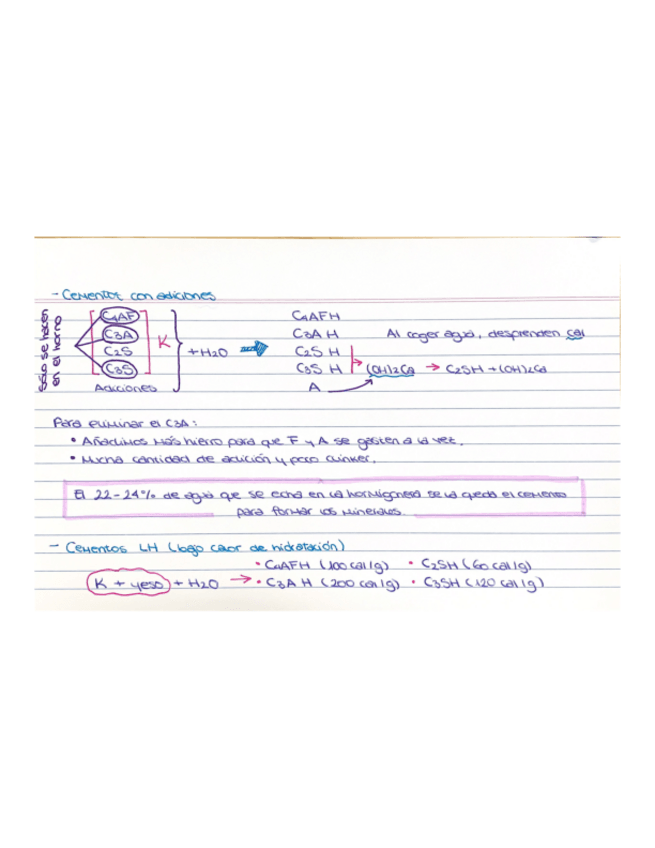 - Cementos con adiciones
sólo se hacen en el horno
C4AF C4AFH
C3A K C3A H Al coger agua, desprenden cal
C2S + H2O C2S H
C3S C3S H (OH)2Ca → C2SH + (OH)2Ca
Adiciones A
Para eliminar el C3A:
• Añadimos más hierro para que F y A se gasten a la vez.
• Mucha cantidad de adición y poco clinker.
El 22-24% de agua que se echa en la hormigonera se la queda el cemento
para formar los minerales.
- Cementos LH (bajo calor de hidratación)
• C4AFH (100 cal/g) • C2SH (60 cal/g)
K + yeso + H2O → • C3A H (200 cal/g) • C3SH (120 cal/g)